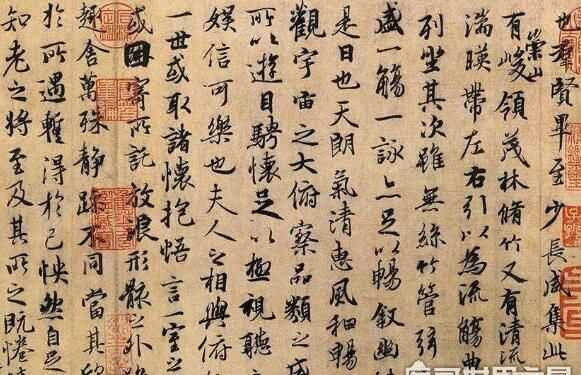 也群賢畢至少長咸集此
有崇山峻領茂林脩竹又有清流
湍暎帶左右引以為流觴曲
列坐其次雖無絲竹管弦
盛一觴一詠亦足以暢叙幽
是日也天朗氣清惠風和暢
觀宇宙之大俯察品類之盛
所以遊目騁懷足以極視聽之
娛信可樂也夫人之相與俯
一世或取諸懷抱悟言一室之
或因寄所託放浪形骸之外
趣舍萬殊靜躁不同當其欣
於所遇暫得於己怏然自足
知老之將至及其所之既惓